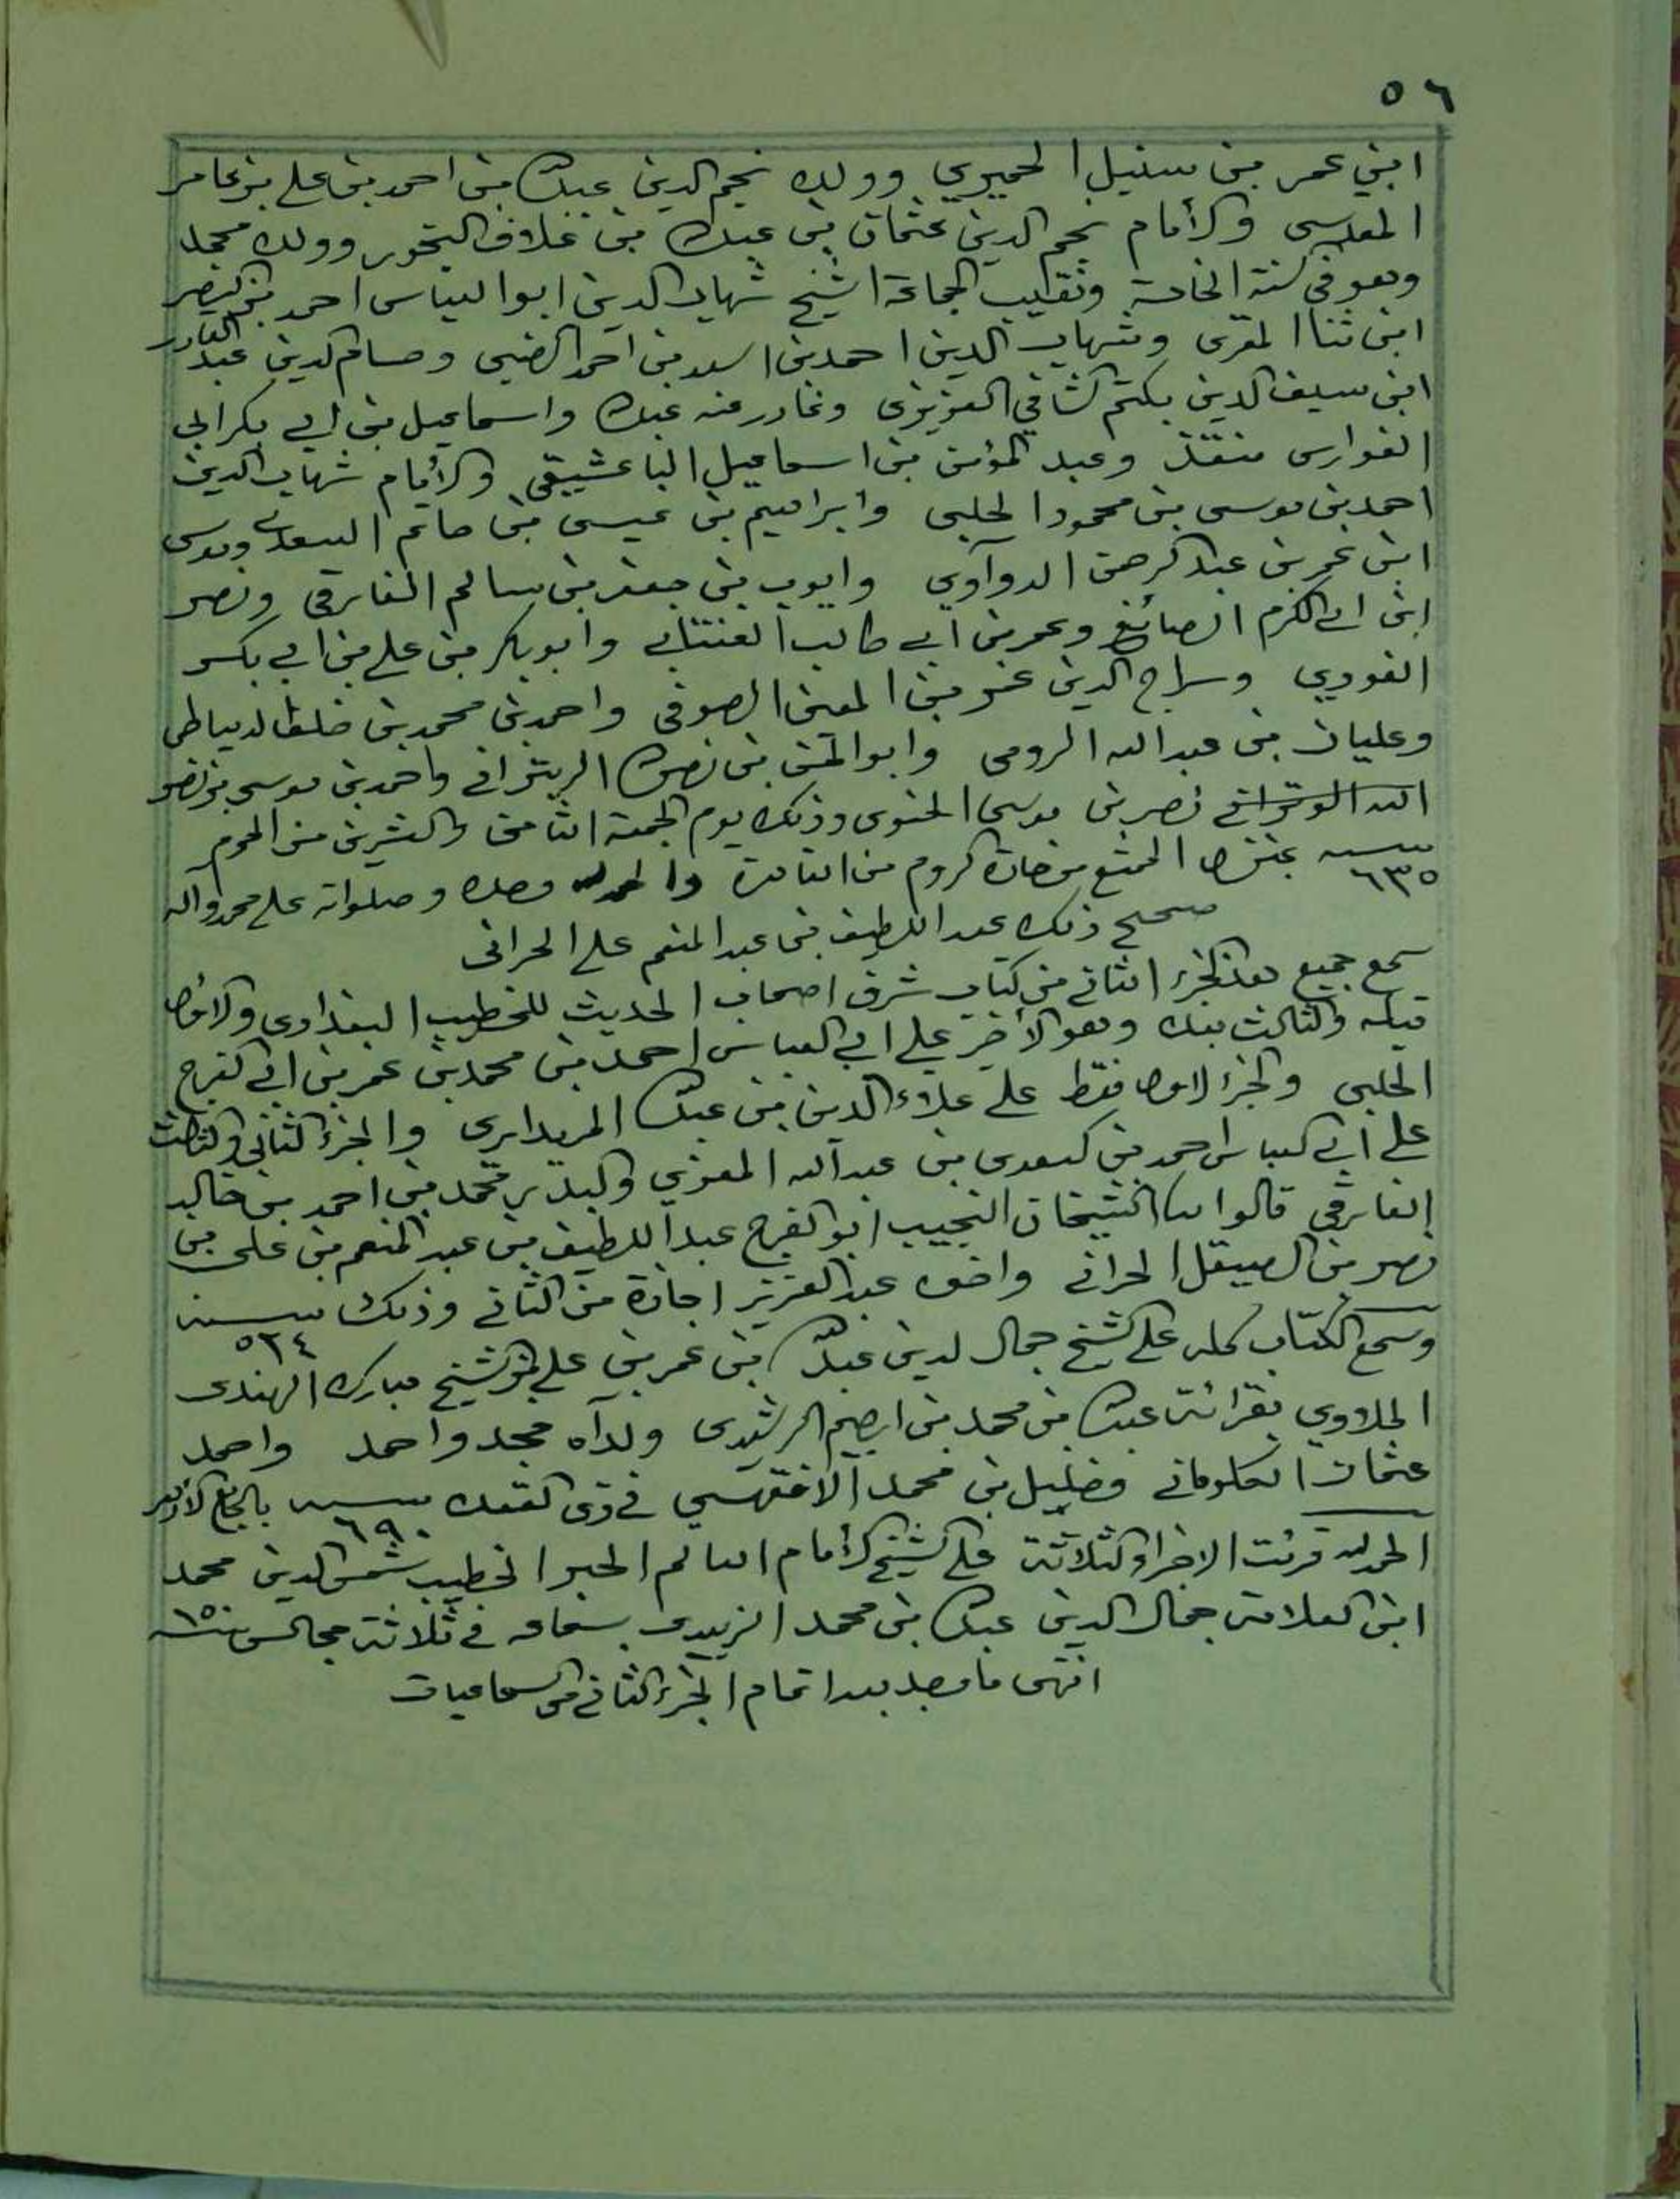 ٥٦
ابني عمر بن سنيل الحميري وولده نجم الدين عبدالله بن احمد بن علي بن عامر
المقدسي والأمام نجم الدين عثمان بن عبدالله بن علاق وولده محمد
وهو في سنة الخامسة ونقيب الجماعة الشيخ شهاب الدين ابوا العباس احمد بن النصر
ابن ثنا المقرى وشهاب الدين احمد بن اسعد بن احمد الضبي وحسام الدين عبد القادر
ابن سيف الدين بكتم العزيزى وغادر عنه عبدالله واسماعيل بن ابي بكر ابي
الفوارس منقذ وعبد المؤمن بن اسماعيل الباعشيقي والأمام شهاب الدين
احمد بن موسى بن محمود الحلبي وابراهيم بن عيسى بن حاتم السعدي وموسى
ابن عمر بن عبد الرحمن الدوآوي وايوب بن جعفر بن سالم الفارقي ونصر
ابن ابي الكرم الصائغ وعمر بن ابي طالب وأبو بكر بن علي بن ابي بكر
الغوري وسراج الدين عمر بن المعين الصوفي واحمد بن محمد بن خلف الدمياطي
وعليان بن عبد الله الرومي وابو بن نصر الله واحمد بن موسى بن نصر
الله نصر بن موسى وذلك يوم الجمعة الثامن والعشرين من المحرم
سنة ٦٣٥ من القاهرة والحمد لله وحده وصلواته على محمد وآله
صحيح ذلك عبد اللطيف بن عبد المنعم علي الحراني
سمع جميع هذا الجزء الثاني من كتاب شرف اصحاب الحديث للخطيب البغدادي والاول
قبله والثالث بعده وهو الأخير علي ابي العباس احمد بن محمد بن عمر بن ابي الفرج
الحلبي والجزء الاول فقط علي علاء الدين بن عبدالله والجزء الثاني والثالث
على ابي العباس احمد بن عبد الله المعزي والبدر محمد بن احمد بن خالد
الفارقي قالوا انا الشيخان النجيب ابو الفرج عبد اللطيف بن عبد المنعم بن علي بن
نصر بن الصيقل الحراني واخوه عبد العزيز اجازة من الثاني وذلك سنة ٥٢٤
وسمع الكتاب كله على الشيخ جمال الدين عبدالله بن عمر بن علي بن الشيخ مبارك الهندي
الحلاوي بقرائة عبدالله بن محمد بن ابراهيم الرشيدى ولدآه محمد واحمد واحمد
عثمان الكلوماتي وخليل بن محمد الاقفهسي في ذي القعدة سنة ٦٩٠ بالجامع الازهر
الحمد لله قرئت الاجزاء الثلاثة علي الشيخ الأمام العالم الحبر الخطيب شمس الدين محمد
ابن العلامة جمال الدين عبدالله بن محمد الزبيدى بسماعه في ثلاثة مجالس
انتهى ما وجد بعد اتمام الجزء الثاني من السماعيات